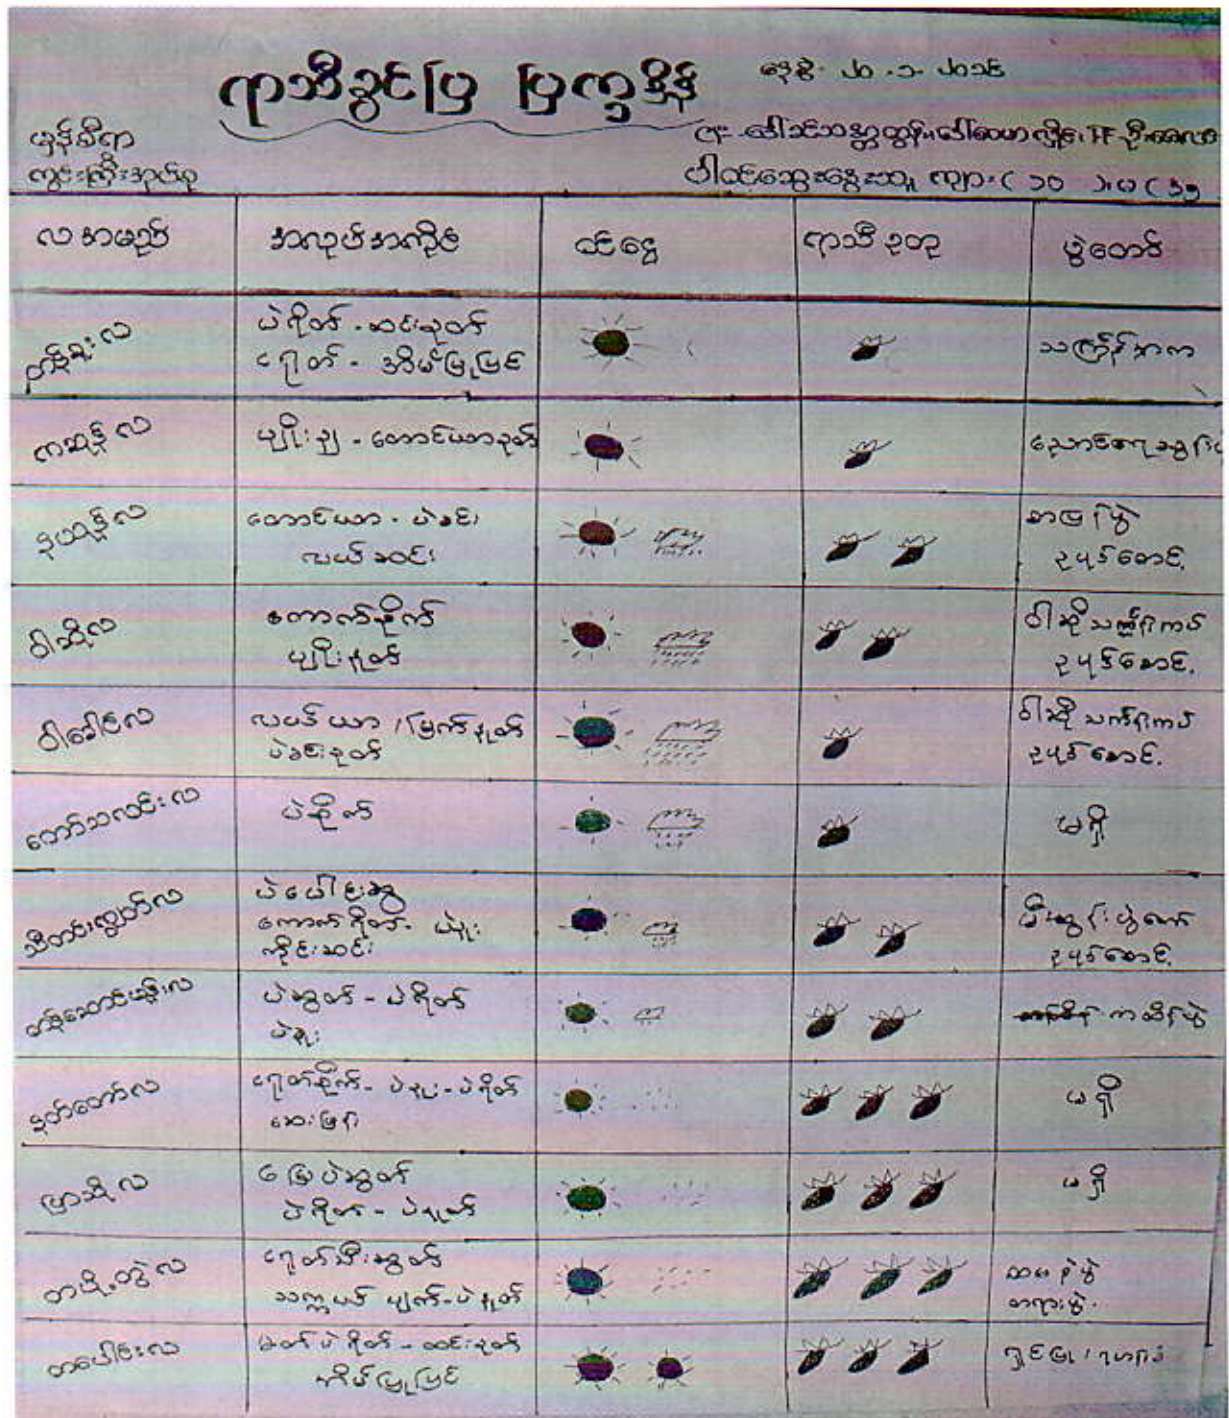 ရာသီခွင်ပြ ပြက္ခဒိန်
နေ့စွဲ- ၂၀.၁.၂၀၁၆
မုန်စိရာ
ကွင်းကြီးအုပ်စု
ပါဝင်ဆွေးနွေးသူ ကျား (၁၀
လအမည်
အလုပ်အကိုင်
ဝင်ငွေ
ရာသီဥတု
ပွဲတော်
တန်ခူးလ
ပဲရိတ် - ထင်းခုတ်
ငရုတ် - အိမ်ပြုပြင်
သင်္ကြန်အက
ကဆုန်လ
မျိုးချ - တောင်ယာခုတ်
ညောင်ရေသွန်းပွဲ
နယုန်လ
တောင်ယာ - ပဲခင်း
လယ်ဆင်း
စာပြန်ပွဲ
ဥပုဒ်စောင့်
ဝါဆိုလ
ကောက်စိုက်
မျိုးနုတ်
ဝါဆိုသင်္ကန်းကပ်
ဥပုဒ်စောင့်
ဝါခေါင်လ
လယ်ယာ / မြက်နုတ်
ပဲခင်းခုတ်
ဝါဆိုသင်္ကန်းကပ်
ဥပုဒ်စောင့်
တော်သလင်းလ
ပဲစိုက်
မရှိ
သီတင်းကျွတ်လ
ပဲပေါင်းဆွ
ကောက်ရိတ်-
ကိုင်းဆင်း
မီးထွန်းပွဲတော်
ဥပုဒ်စောင့်
တန်ဆောင်မုန်းလ
ပဲဆွတ် - ပဲရိတ်
ပဲခူး
ကထိန်ပွဲ
နတ်တော်လ
ငရုတ်စိုက် - ပဲခူး - ပဲရိတ်
ဆေးဖြန်း
မရှိ
ပြာသိုလ
မြေပဲဆွတ်
ပဲရိတ် - ပဲနုတ်
မရှိ
တပို့တွဲလ
ငရုတ်သီးဆွတ်
ပျက် - ပဲနုတ်
ထမနဲပွဲ
တရားပွဲ
တပေါင်းလ
မတ်ပဲရိတ် - ထင်းခုတ်
အိမ်ပြုပြင်
ရှင်ပြု / ရဟန်းခံ